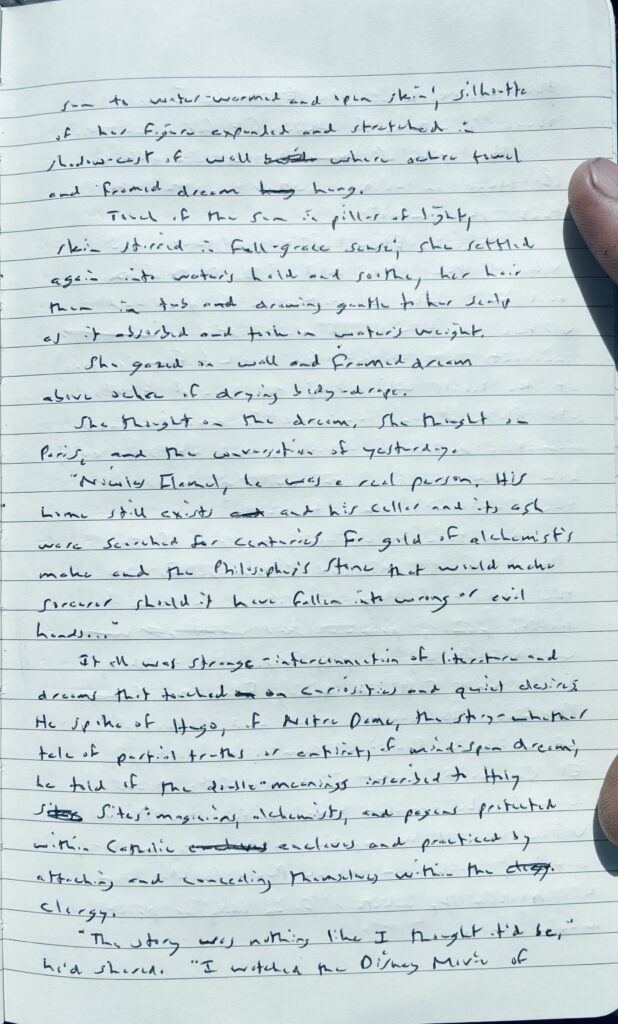 sun to water-warmed and open skin; silhoutte
of her figure expanded and stretched in
shadow-cast of wall where ochre towel
and framed dream hung.
Touch of the sun in pillar of light,
skin stirred in full-grace sense; she settled
again into water's hold and soothe, her hair
then in tub and drawing gentle to her scalp
as it absorbed and took on water's weight.
She gazed on wall and framed dream
above ochre of drying body-drape.
She thought on the dream. She thought on
Paris, and the conversation of yesterday.
"Nicolas Flamel, he was a real person. His
home still exists and his cellar and its ash
were searched for centuries for gold of alchemist's
make and the Philosopher's Stone that would make
sorcerer should it have fallen into wrong or evil
hands..."
It all was strange-interconnection of literature and
dreams that touched on curiosities and quiet desires.
He spoke of Hugo, of Notre Dame, the story-whether
tale of partial truths or entirety of mind-spun dream;
he told of the double-meanings inscribed to Holy
Sites: magicians, alchemists, and pagans protected
within Catholic enclaves and practiced by
attaching and concealing themselves within the
clergy.
"The story was nothing like I thought it'd be,"
he'd shared. "I watched the Disney Movie of